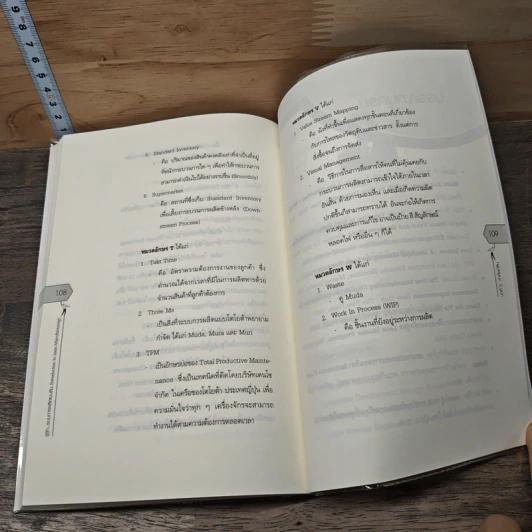 5. Standard Inventory
คือ ปริมาณสินค้าคงคลังเท่าที่จำเป็นที่อยู่
ระหว่างกระบวนการใด ๆ เพื่อทำให้กระบวนการ
สามารถดำเนินไปได้อย่างราบรื่น (Smoothly)
6. Supermarket
คือ สถานที่ซึ่งเก็บ Standard Inventory
เพื่อเลี้ยงกระบวนการผลิตข้างหลัง (Down-
stream Process)
หมวดอักษร T ได้แก่
1. Takt Time
คือ อัตราความต้องการงานของลูกค้า ซึ่ง
คำนวณได้จากเวลาที่มีในการผลิตหารด้วย
จำนวนสินค้าที่ลูกค้าต้องการ
2. Three Ms
เป็นสิ่งที่ระบบการผลิตแบบโตโยต้าพยายาม
กำจัด ได้แก่ Muda, Mura และ Muri
3. TPM
เป็นอักษรย่อของ Total Productive Mainte-
nance ซึ่งเป็นเทคนิคที่คิดโดยบริษัทเดนโซ่
จำกัด ในเครือของโตโยต้า ประเทศญี่ปุ่น เพื่อ
ความมั่นใจว่าทุก ๆ เครื่องจักรจะสามารถ
ทำงานได้ตามความต้องการตลอดเวลา
108
หมวดอักษร V ได้แก่
1. Value Stream Mapping
คือ ผังที่ทำขึ้นเพื่อแสดงทุกขั้นตอนที่เกี่ยวข้อง
กับการไหลของวัตถุดิบและข่าวสาร ตั้งแต่การ
สั่งซื้อจนถึงการจัดส่ง
2. Visual Management
คือ วิธีการในการสื่อสารให้คนที่ไม่คุ้นเคยกับ
กระบวนการผลิตสามารถเข้าใจได้ภายในเวลา
อันสั้น ด้วยการมองเห็น และเมื่อเกิดความผิด
ปกติขึ้นก็สามารถทราบได้ อันจะก่อให้เกิดการ
ควบคุมและการแก้ไข อาจเป็นป้าย สี สัญลักษณ์
หลอดไฟ หรืออื่น ๆ ก็ได้
หมวดอักษร W ได้แก่
1. Waste
- ดู Muda
2. Work In Process (WIP)
- คือ ชิ้นงานที่ยังอยู่ระหว่างการผลิต
109